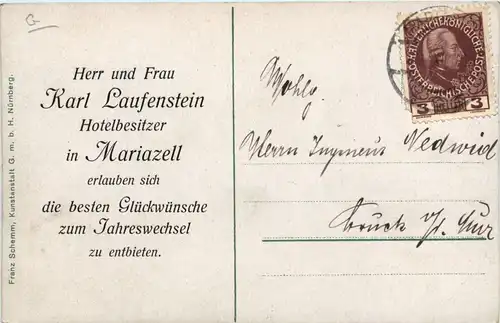 G
Herr und Frau
Karl Laufenstein
Hotelbesitzer
in Mariazell
erlauben sich
die besten Glückwünsche
zum Jahreswechsel
zu entbieten.
Franz Schemm, Kunstanstalt G. m. b. H. Nürnberg.
3 3
Wohlg.
Herrn Ingenieur Nedwid
Bruck a/d. Mur